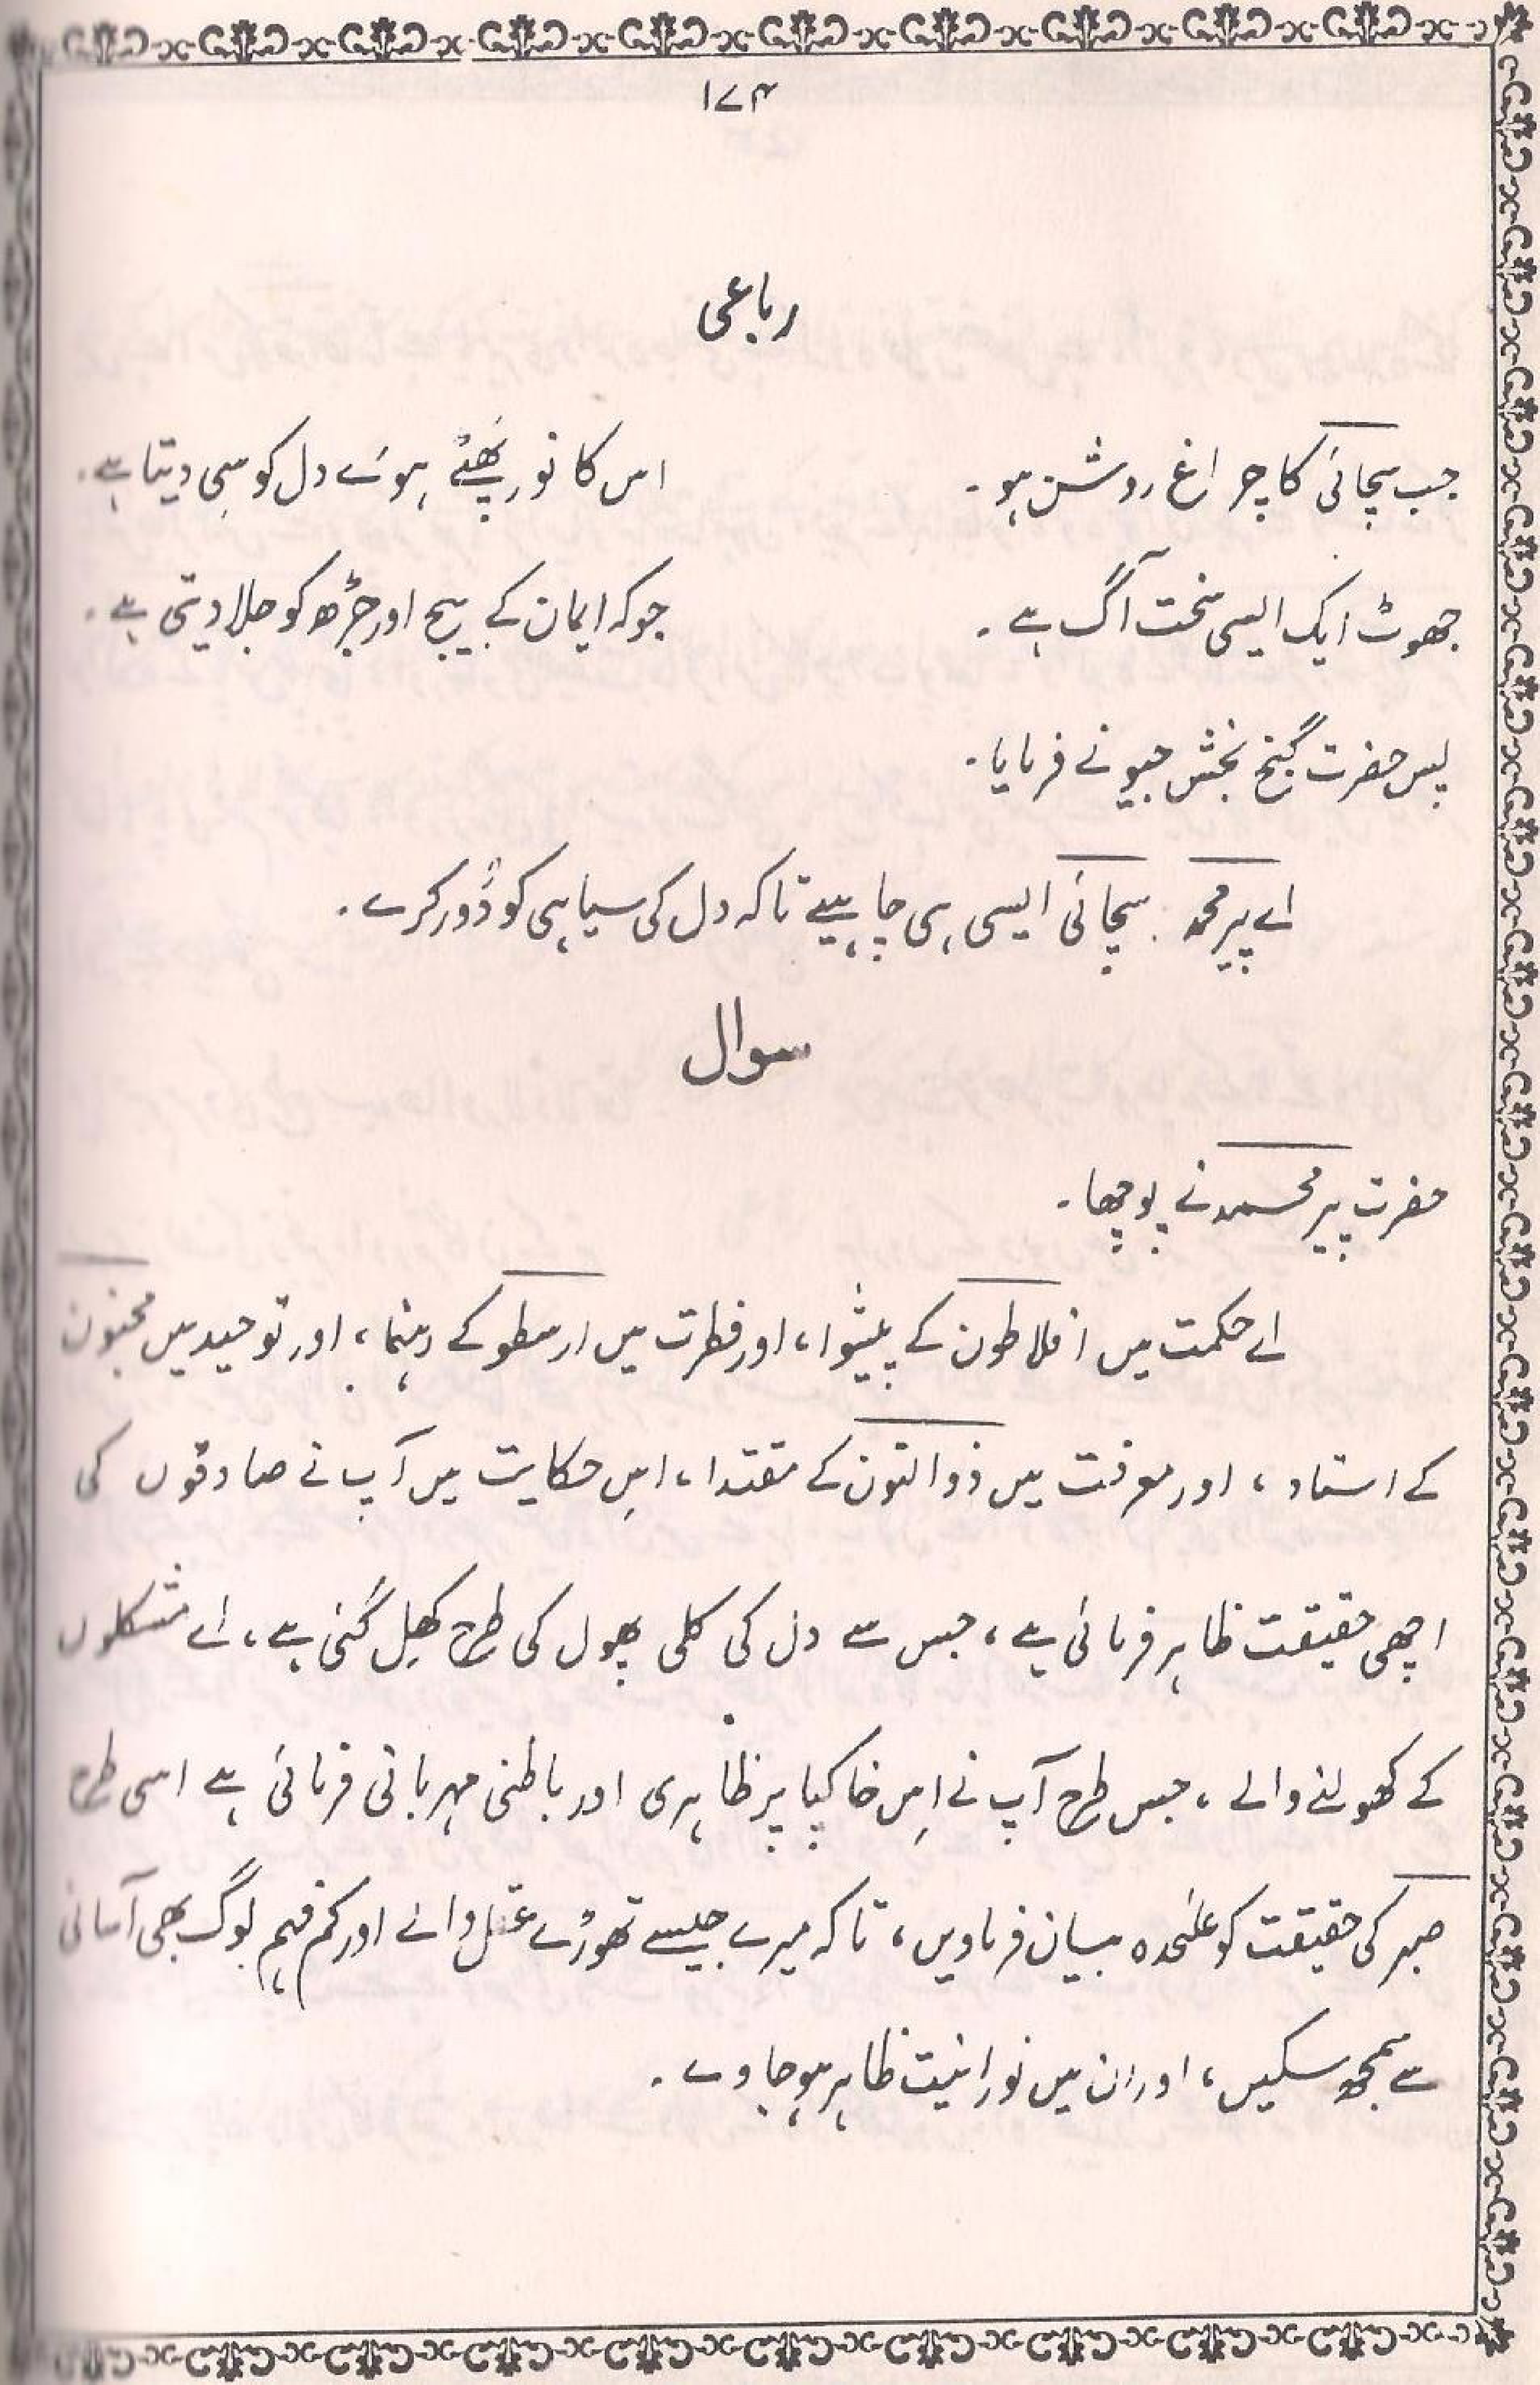 ۱۷۴
رباعی
جب سچائی کا چراغ روشن ہو۔ اس کا نور پھٹے ہوئے دل کو سی دیتا ہے۔
جھوٹ ایک ایسی سخت آگ ہے۔ جو کہ ایمان کے بیج اور جڑھ کو جلا دیتی ہے۔
پس حضرت گنج بخش جیو نے فرمایا۔
اے پیر محمد۔ سچائی ایسی ہی چاہیے تاکہ دل کی سیاہی کو دُور کرے۔
سوال
حضرت پیر محمد نے پوچھا۔
اے حکمت میں افلاطون کے پیشوا، اور فطرت میں ارسطو کے رہنما، اور توحید میں مجنون
کے استاد، اور معرفت میں ذوالنون کے مقتدا، اِس حکایت میں آپ نے صادقوں کی
اچھی حقیقت ظاہر فرمائی ہے، جس سے دل کی کلی پھول کی طرح کھِل گئی ہے، اے مشکلوں
کے کھولنے والے، جس طرح آپ نے اِس خاکپا پر ظاہری اور باطنی مہربانی فرمائی ہے اسی طرح
صبر کی حقیقت کو علٰحدہ بیان فرماویں، تاکہ میرے جیسے تھوڑے عقل والے اور کم فہم لوگ بھی آسانی
سے سمجھ سکیں، اور ان میں نورانیت ظاہر ہو جاوے۔